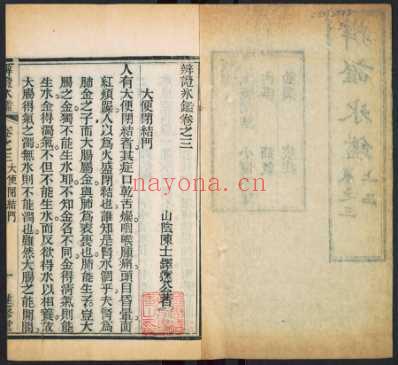 辨證氷鑑 卷之三
辨證氷鑑卷之三
大便閉結門
山陰陳士鐸遠公著
人有大便閉結者其症口乾舌燥咽喉腫痛頭目昏暈面
紅煩躁人以爲火盛閉結也誰知是腎水涸乎夫腎爲
肺金之子而大腸屬金與肺爲表裏也肺能生子豈大
腸之金獨不能生水耶不知金各不同金得清氣則能
生水金得濁氣不但不能生水而反欲得水以相養故
大腸得氣之濁無水則不能潤也雖然大腸之能開闔
辨證氷鑑 卷之三 大便閉結門 一
nayona.cn